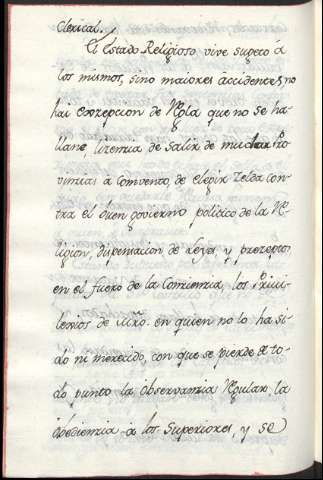 Clerical.
El Estado Religioso vive sugeto à
los mismos, sino maiores accidentes, no
hai exzepcion de Rgla que no se ha-
llane, lizemzia de salir de muchas Pro
vimzias à Comvento, de elegir Zelda con-
tra el buen govierno politico de la Re-
ligion, dispensacion de Leyes, y prezeptos
en el fuero de la Comziemzia, los Privi-
legios de Mro. en quien no lo ha si-
do ni merezido, con que se pierde de to-
do punto la observamzia Regular, la
obediemzia à los Superiores, y se